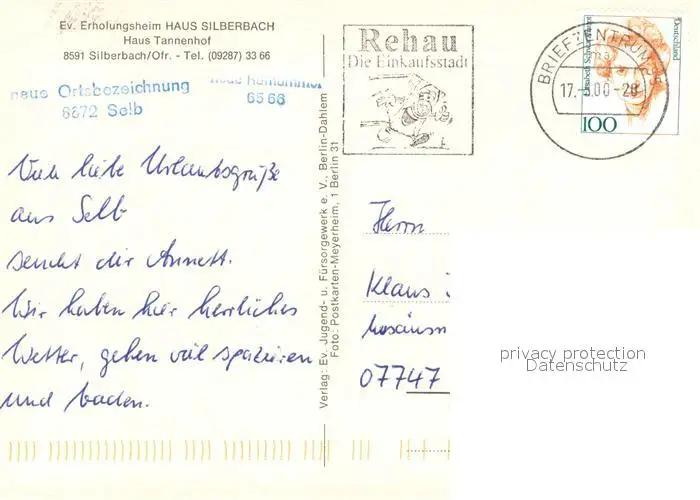 Ev. Erholungsheim HAUS SILBERBACH
Haus Tannenhof
8591 Silberbach/Ofr. - Tel. (09287) 33 66
neue Ortsbezeichnung
6672 Selb
neue Rufnummer
65 66
Viele liebe Urlaubsgrüße
aus Selb
sendet dir Annett.
Wir haben hier herrliches
Wetter, gehen viel spazieren
und baden.
Verlag: Ev. Jugend- u. Fürsorgewerk e. V., Berlin-Dahlem
Foto: Postkarten-Meyerheim, 1 Berlin 31
Rehau
Die Einkaufsstadt
BRIEFZENTRUM
17. .00-20
Deutschland
100
Herrn
Klaus
07747
privacy protection
Datenschutz